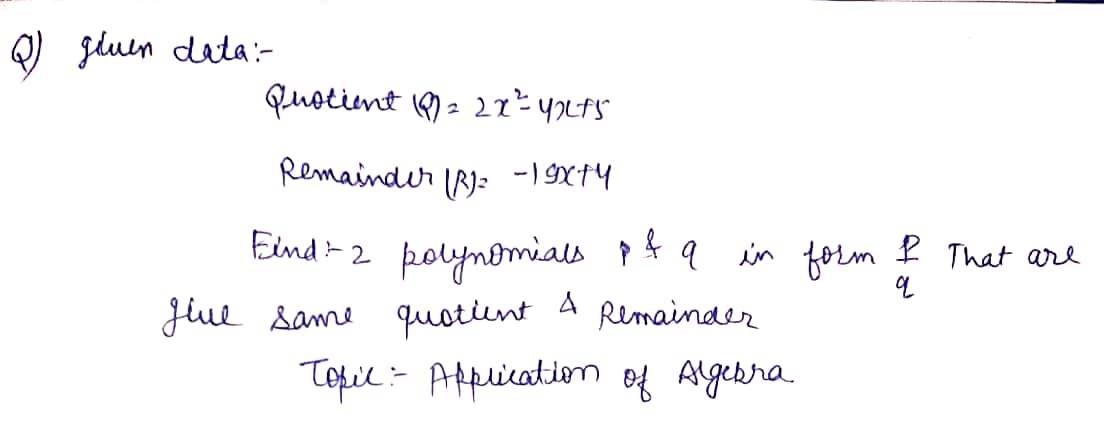 Q) given data:-
Quotient (Q) = 2x²-4x+5
Remainder (R)= -19x+4
Find :- 2 polynomials p & q in form p/q That are
give same quotient & Remainder
Topic :- Application of Algebra